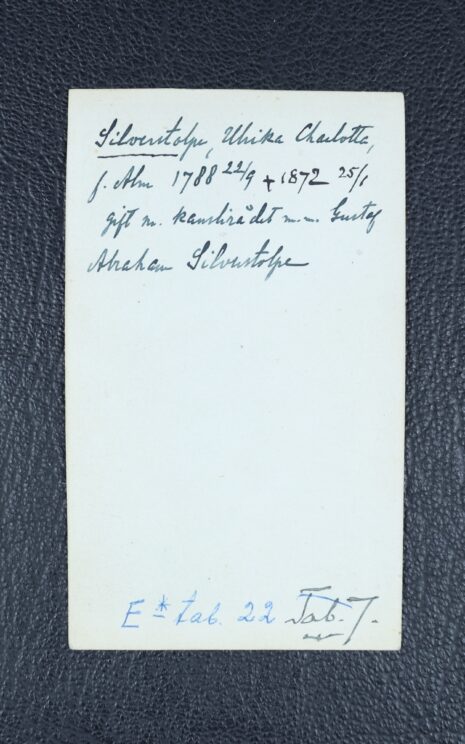 Silverstolpe, Ulrika Charlotta,
f. Alm 1788 22/9 + 1872 25/1
gift m. kanslirådet m.m. Gustaf
Abraham Silverstolpe
E* tab. 22 Tab. 7.